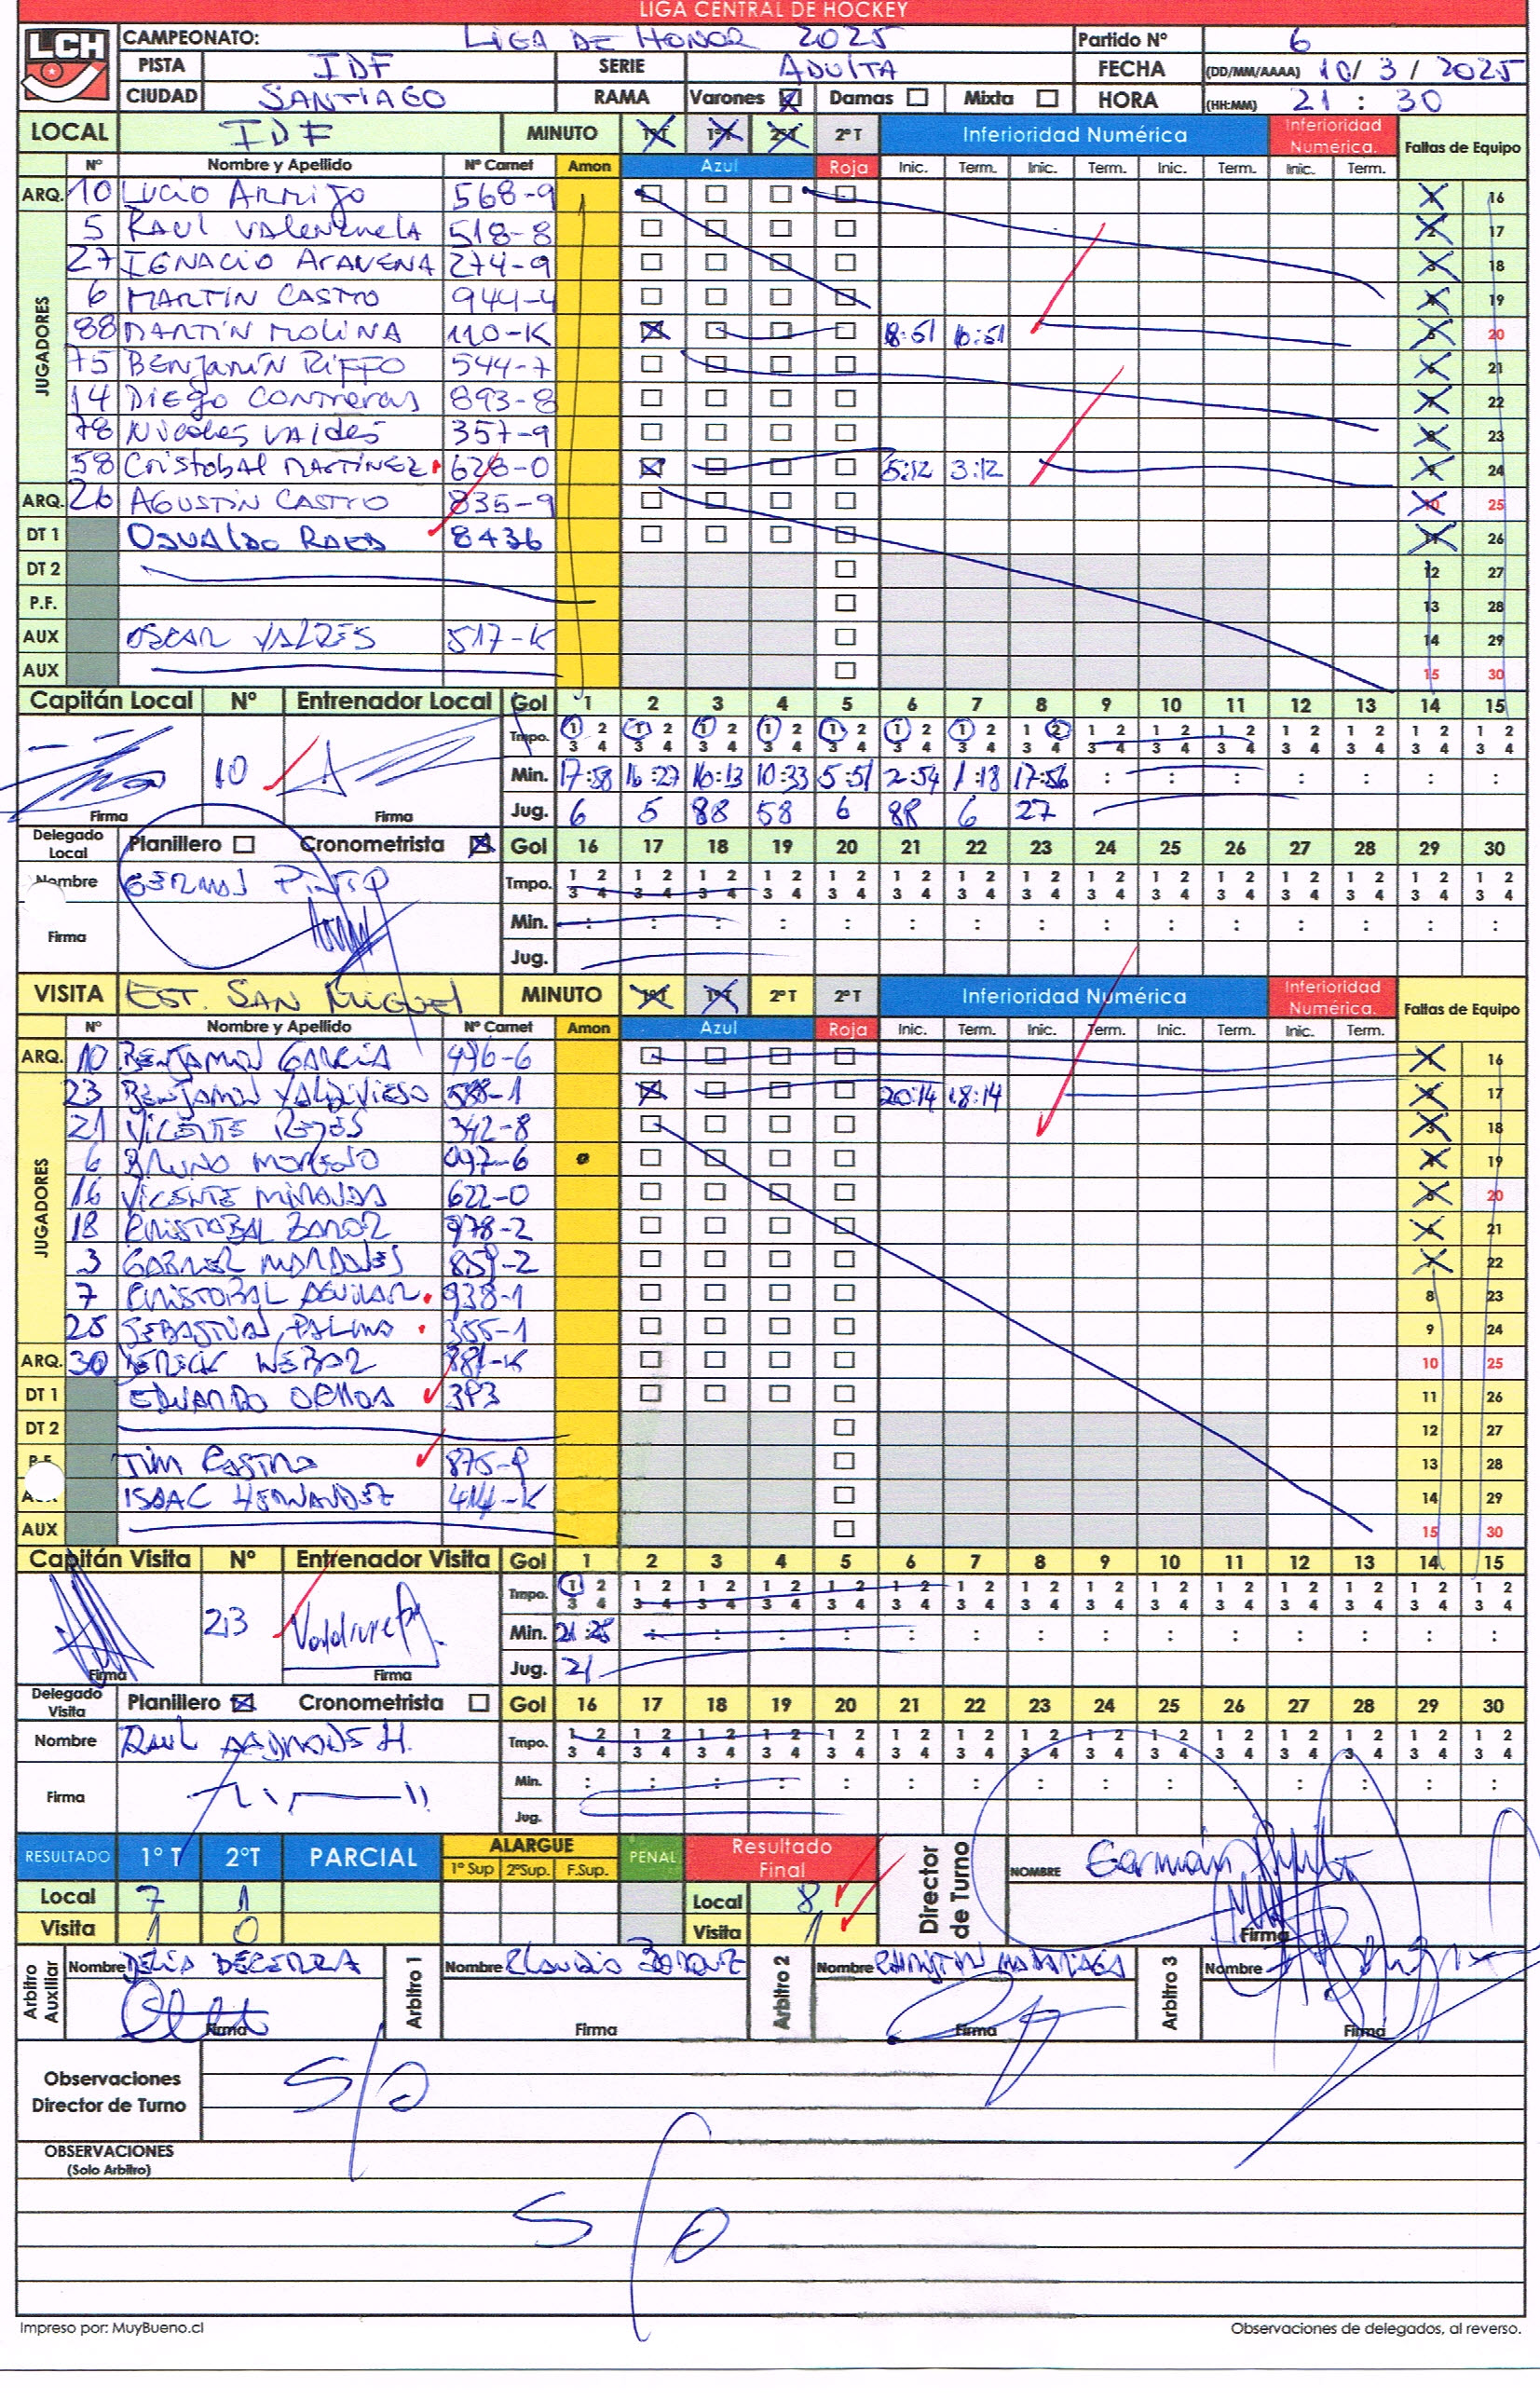 LIGA CENTRAL DE HOCKEY
LCH CAMPEONATO: LIGA DE HONOR 2025 Partido Nº 6
PISTA IDF SERIE ADULTA FECHA (DD/MM/AAAA) 10/ 3 / 2025
CIUDAD SANTIAGO RAMA Varones Damas Mixta HORA (HH:MM) 21 : 30
LOCAL IDF MINUTO 1ºT 1ºT 2ºT 2ºT Inferioridad Numérica Inferioridad Numérica. Faltas de Equipo
Nº Nombre y Apellido Nº Carnet Amon Azul Roja Inic. Term. Inic. Term. Inic. Term. Inic. Term.
ARQ. 10 LUCIO ARMIJO 568-9 1 16
5 RAUL VALENZUELA 518-8 2 17
27 IGNACIO ARAVENA 274-9 3 18
6 MARTIN CASTRO 944-4 4 19
JUGADORES
88 MARTÍN MOLINA 110-K 18:51 16:51 5 20
75 BENJAMÍN RIFFO 544-7 6 21
14 DIEGO CONTRERAS 893-8 7 22
78 NICOLAS VALDÉS 357-9 8 23
58 CRISTOBAL MARTÍNEZ 628-0 5:12 3:12 9 24
ARQ. 26 AGUSTIN CASTRO 835-9 10 25
DT 1 OSVALDO RAED 8436 11 26
DT 2 12 27
P.F. 13 28
AUX OSCAR VALDES 517-K 14 29
AUX 15 30
Capitán Local Nº Entrenador Local Gol 1 2 3 4 5 6 7 8 9 10 11 12 13 14 15
Tmpo. 1 2 3 4 1 2 3 4 1 2 3 4 1 2 3 4 1 2 3 4 1 2 3 4 1 2 3 4 1 2 3 4 1 2 3 4 1 2 3 4 1 2 3 4 1 2 3 4 1 2 3 4 1 2 3 4 1 2 3 4
10 Min. 17:58 16:27 16:13 10:33 5:51 2:54 1:18 17:56 : : : : : : :
Firma Firma Jug. 6 5 88 58 6 88 6 27
Delegado Local Planillero Cronometrista Gol 16 17 18 19 20 21 22 23 24 25 26 27 28 29 30
Nombre GERMAN PINTO Tmpo. 1 2 3 4 1 2 3 4 1 2 3 4 1 2 3 4 1 2 3 4 1 2 3 4 1 2 3 4 1 2 3 4 1 2 3 4 1 2 3 4 1 2 3 4 1 2 3 4 1 2 3 4 1 2 3 4 1 2 3 4
Firma Min. : : : : : : : : : : : : : : :
Jug.
VISITA EST. SAN MIGUEL MINUTO 1ºT 1ºT 2ºT 2ºT Inferioridad Numérica Inferioridad Numérica. Faltas de Equipo
Nº Nombre y Apellido Nº Carnet Amon Azul Roja Inic. Term. Inic. Term. Inic. Term. Inic. Term.
ARQ. 10 BENJAMIN GARCIA 496-6 1 16
23 BENJAMIN VALDIVIESO 588-1 20:14 18:14 2 17
21 VICENTE REYES 342-8 3 18
6 BRUNO 097-6 4 19
JUGADORES
16 VICENTE MIRANDA 622-0 5 20
18 CRISTOBAL 978-2 6 21
3 GABRIEL 859-2 7 22
7 CRISTOBAL AGUILAR 938-1 8 23
25 SEBASTIAN PALMA 355-1 9 24
ARQ. 30 881-K 10 25
DT 1 EDUARDO 393 11 26
DT 2 12 27
P.F. TIM CASTRO 875-9 13 28
ISAAC HERNANDEZ 414-K 14 29
AUX 15 30
Capitán Visita Nº Entrenador Visita Gol 1 2 3 4 5 6 7 8 9 10 11 12 13 14 15
Tmpo. 1 2 3 4 1 2 3 4 1 2 3 4 1 2 3 4 1 2 3 4 1 2 3 4 1 2 3 4 1 2 3 4 1 2 3 4 1 2 3 4 1 2 3 4 1 2 3 4 1 2 3 4 1 2 3 4 1 2 3 4
23 Min. 21:28 : : : : : : : : : : : : : :
Firma Firma Jug. 21
Delegado Visita Planillero Cronometrista Gol 16 17 18 19 20 21 22 23 24 25 26 27 28 29 30
Nombre RAUL H. Tmpo. 1 2 3 4 1 2 3 4 1 2 3 4 1 2 3 4 1 2 3 4 1 2 3 4 1 2 3 4 1 2 3 4 1 2 3 4 1 2 3 4 1 2 3 4 1 2 3 4 1 2 3 4 1 2 3 4 1 2 3 4
Firma Min. : : : : : : : : : : : : : : :
Jug.
RESULTADO 1º T 2ºT PARCIAL ALARGUE 1º Sup 2ºSup. F.Sup. PENAL Resultado Final Director de Turno NOMBRE Germán
Local 7 1 Local 8
Visita 1 0 Visita 1 Firma
Arbitro Auxiliar Nombre DELIA BECERRA Arbitro 1 Nombre Claudio Arbitro 2 Nombre Arbitro 3 Nombre
Firma Firma Firma Firma
Observaciones Director de Turno S/O
OBSERVACIONES
(Solo Arbitro)
S/O
Impreso por: MuyBueno.cl Observaciones de delegados, al reverso.